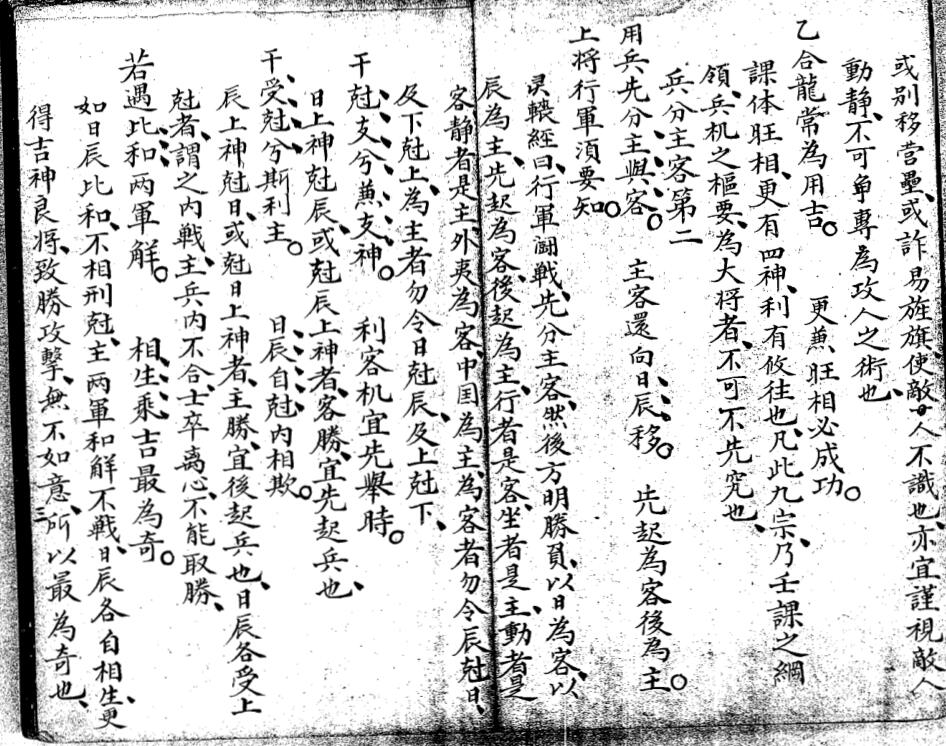 或别移营壘、或詐易旌旗、使敵人不識也、亦宜謹視敵人
動静、不可争專為攻人之術也、
乙合龍常為用吉。 更䕍旺相必成功。
課体旺相、更有四神、利有攸往也、凡此九宗、乃壬課之綱
領、兵机之樞要、為大将者、不可不先究也、
兵分主客第二
用兵先分主與客。 主客還向日辰移。 先起為客後為主。
上将行軍須要知。
灵轄經曰、行軍鬪戦、先分主客、然後方明勝負、以日為客、以
辰為主、先起為客、後起為主、行者是客、坐者是主、動者是
客、静者是主、外夷為客、中国為主、為客者勿令辰尅日、
及下尅上、為主者勿令日尅辰、及上尅下、
干尅支兮䕍支神。 利客机宜先舉時。
日上神尅辰、或尅辰上神者、客勝、宜先起兵也、
干受尅兮斯利主。 日辰自尅内相欺。
辰上神尅日、或尅日上神者、主勝、宜後起兵也、日辰各受上
尅者、謂之内戦、主兵内不合、士卒离心、不能取勝、
若遇比和两軍解。 相生乘吉最為奇。
如日辰比和、不相刑尅、主两軍和解不戦、日辰各自相生、更
得吉神良将、致勝攻擊、無不如意、所以最為奇也、
三